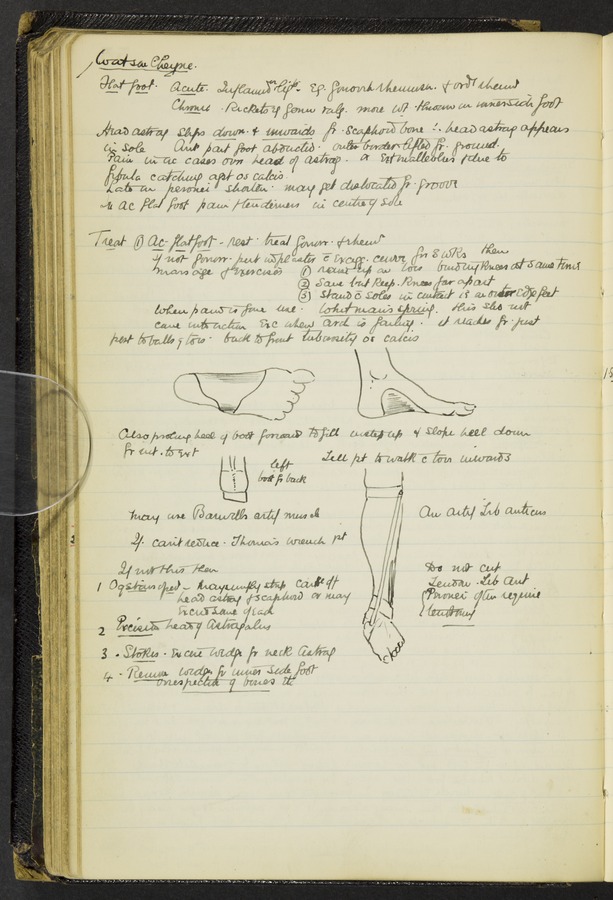 Watson Cheyne.
Flat foot. Acute. Inflamed lig. Eg. Gonorrh rheumism. & ordy rheum
Chronic. Rickets & genu valg. more wt. thrown on inner side foot
Head astrag slips down & inwards fr. Scaphoid bone ∴ head astrag appears
in sole Ant part foot abducted. outer border lifted fr. ground.
Pain in ac cases over head of astrag. or Ext malleolus & due to
fibula catching agst os calcis.
Later on peronei shorten. may get dislocated fr. groove
In ac flat foot pain & tenderness in centre of sole
Treat ① Ac. flatfoot - rest. treat gonorr. & rheum
if not gonorr. put up plaster c̄ exagg. curve for 3 wks then
massage & exercises ① raise up on toes bending knees at same time
② Same but keep knees far apart
③ Stand c̄ soles in contact ie on outer edge feet
When pain is gone use. Whitman's spring. This slips
when arch is failing. it reaches fr. just
post to balls of toes. back to front tuberosity os calcis
Also prolong heel of boot forward to fill instep up & slope heel down
fr int. to ext
Tell pt to walk c̄ toes inwards
left
boot fr back
may use Barwell's artif muscle
An artif Tib anticus
If can't reduce. Thomas wrench pt
If not this then
Do not cut
tendon Tib Ant
Peronei often require
tenotomy
1 Ogston's oped - may simply strip cart off
head astrag & scaphoid or may
excise some of each
2 Excision head of Astragalus
3. Stokes. Excise wedge fr neck astrag
4. Remove wedge fr inner side foot
irrespective of bones etc